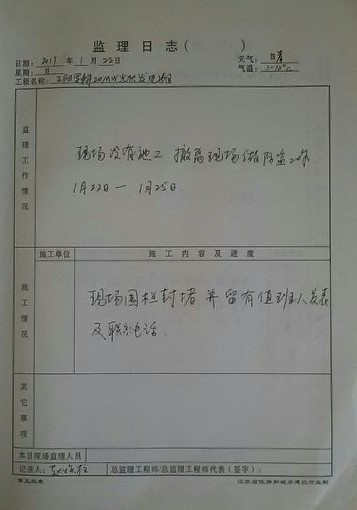 监理日志(          )
日期: 2017 年 1月 22日 天气: 晴
星期: 日 气温:
工程名称: 20MW光伏发电项目
监理工作情况
现场没有施工 撤离现场做防盗工作.
1月22日 — 1月25日.
施工单位 施工内容及进度
施工情况
现场围栏封堵 并留有值班人员表
及联系电话.
其它事项
本日现场监理人员
记录人: 总监理工程师/总监理工程师代表(签字):
第五版表 江苏省住房和城乡建设厅监制